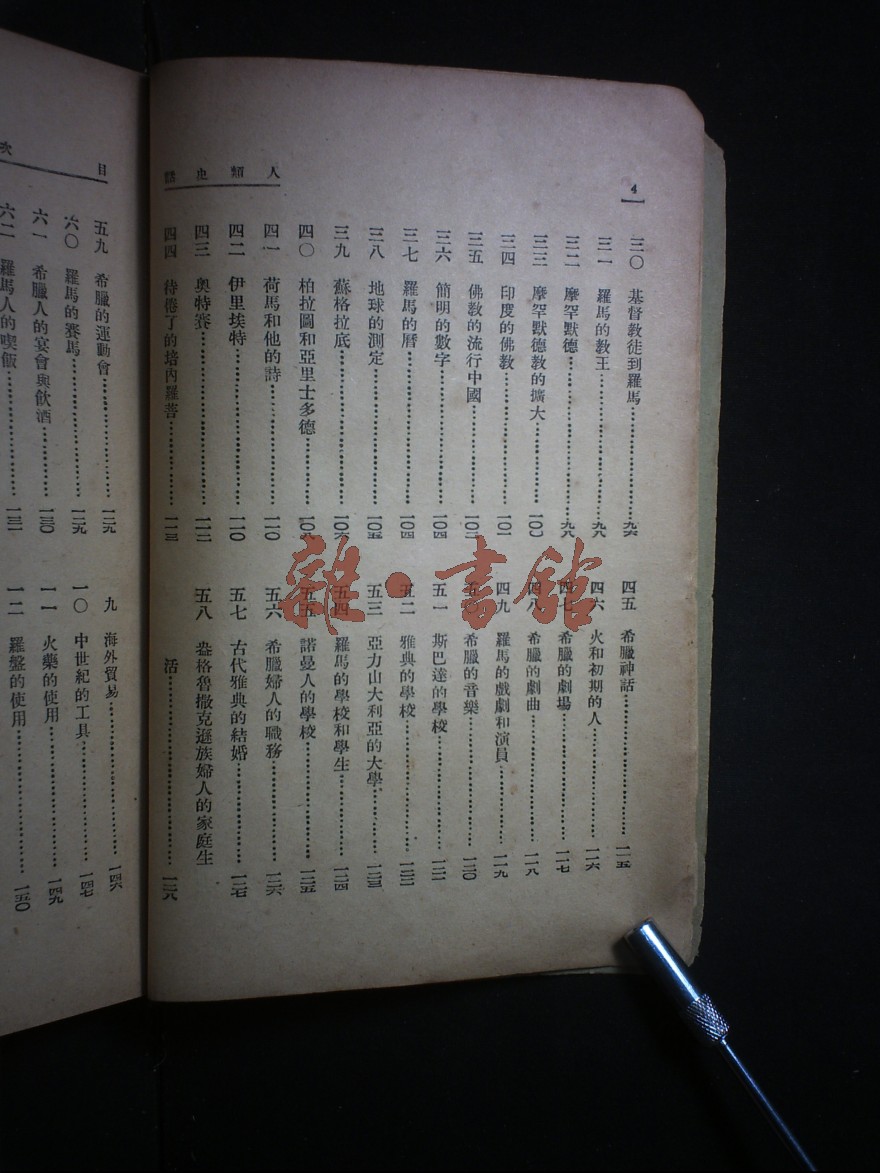 4
人類史話
三〇 基督教徒到羅馬…………九六
三一 羅馬的教王…………九八
三二 摩罕默德…………九八
三三 摩罕默德教的擴大…………一〇〇
三四 印度的佛教…………一〇一
三五 佛教的流行中國…………一〇三
三六 簡明的數字…………一〇四
三七 羅馬的曆…………一〇四
三八 地球的測定…………一〇五
三九 蘇格拉底…………一〇六
四〇 柏拉圖和亞里士多德…………一〇八
四一 荷馬和他的詩…………一一〇
四二 伊里埃特…………一一〇
四三 奧特賽…………一一二
四四 待倦了的培內羅菩…………一一三
四五 希臘神話…………一一五
四六 火和初期的人…………一一六
四七 希臘的劇場…………一一七
四八 希臘的劇曲…………一一八
四九 羅馬的戲劇和演員…………一一九
五〇 希臘的音樂…………一二〇
五一 斯巴達的學校…………一二一
五二 雅典的學校…………一二二
五三 亞力山大利亞的大學…………一二三
五四 羅馬的學校和學生…………一二四
五五 諾曼人的學校…………一二五
五六 希臘婦人的職務…………一二六
五七 古代雅典的結婚…………一二七
五八 盎格魯撒克遜族婦人的家庭生
活…………一二八
雜·書館
目次
五九 希臘的運動會…………一二九
六〇 羅馬的賽馬…………一二九
六一 希臘人的宴會與飲酒…………一三〇
六二 羅馬人的喫飯…………一三一
九 海外貿易…………一四六
一〇 中世紀的工具…………一四七
一一 火藥的使用…………一四九
一二 羅盤的使用…………一五〇